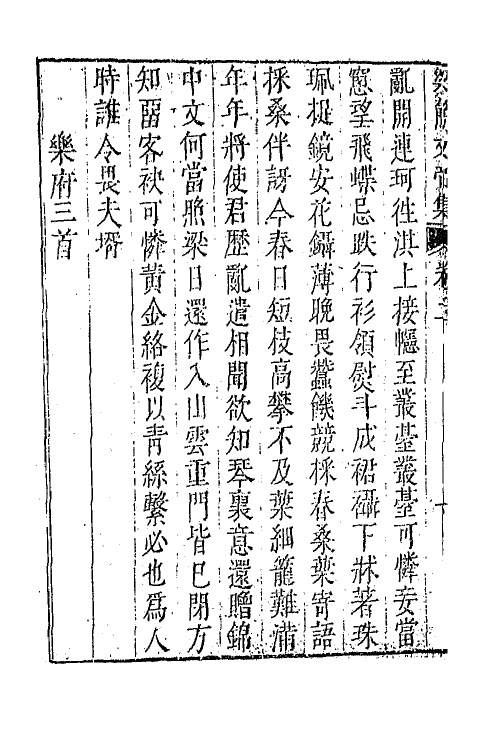 亂開連珂往淇上接幰至叢臺叢臺可憐妾當
窻望飛蝶忌跌行衫領熨斗成裙襵下牀著珠
珮捉鏡安花鑷薄晚畏蠶饑競採春桑葉寄語
採桑伴訝今春日短枝高攀不及葉細籠難滿
年年將使君歷亂遣相聞欲知琴裏意還贈錦
中文何當照梁日還作入山雲重門皆已閉方
知留客袂可憐黃金絡複以青絲繫必也爲人
時誰令畏夫壻
樂府三首